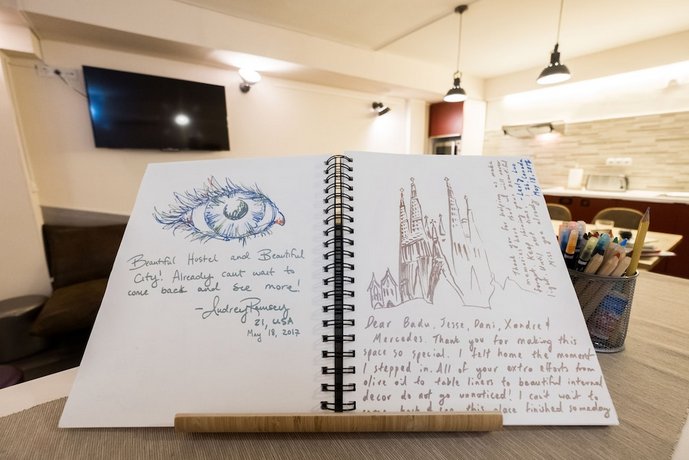 Beautiful Hostel and Beautiful
City! Already cant wait to
come back and see more!
- Audrey Ramsey
21, USA
May 18, 2017
Dear Badu, Jesse, Dani, Xandre &
Mercedes. Thank you for making this
space so special. I felt home the moment
I stepped in. All of your extra efforts from
olive oil to table liners to beautiful internal
decor do not go unnoticed! I can't wait to
come back & see this place finished someday
Thank You for